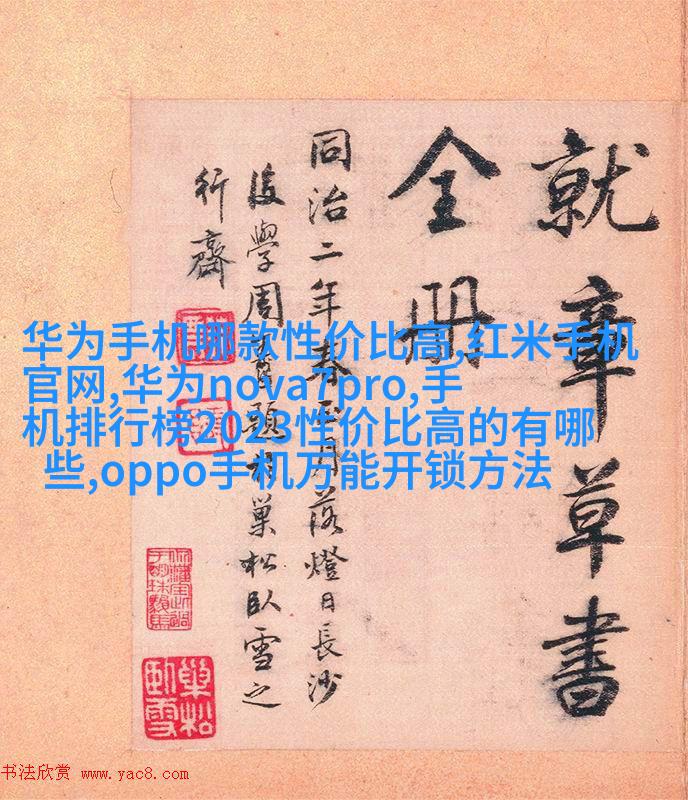 就章草書
全册
同治二年春正月落燈日長沙
後學周題於巢松臥雪之
行齋
华为手机哪款性价比高,红米手机
官网,华为nova7pro,手
机排行榜2023性价比高的有哪
些,oppo手机万能开锁方法
巢松
臥雪
书法欣赏 www.yac8.com